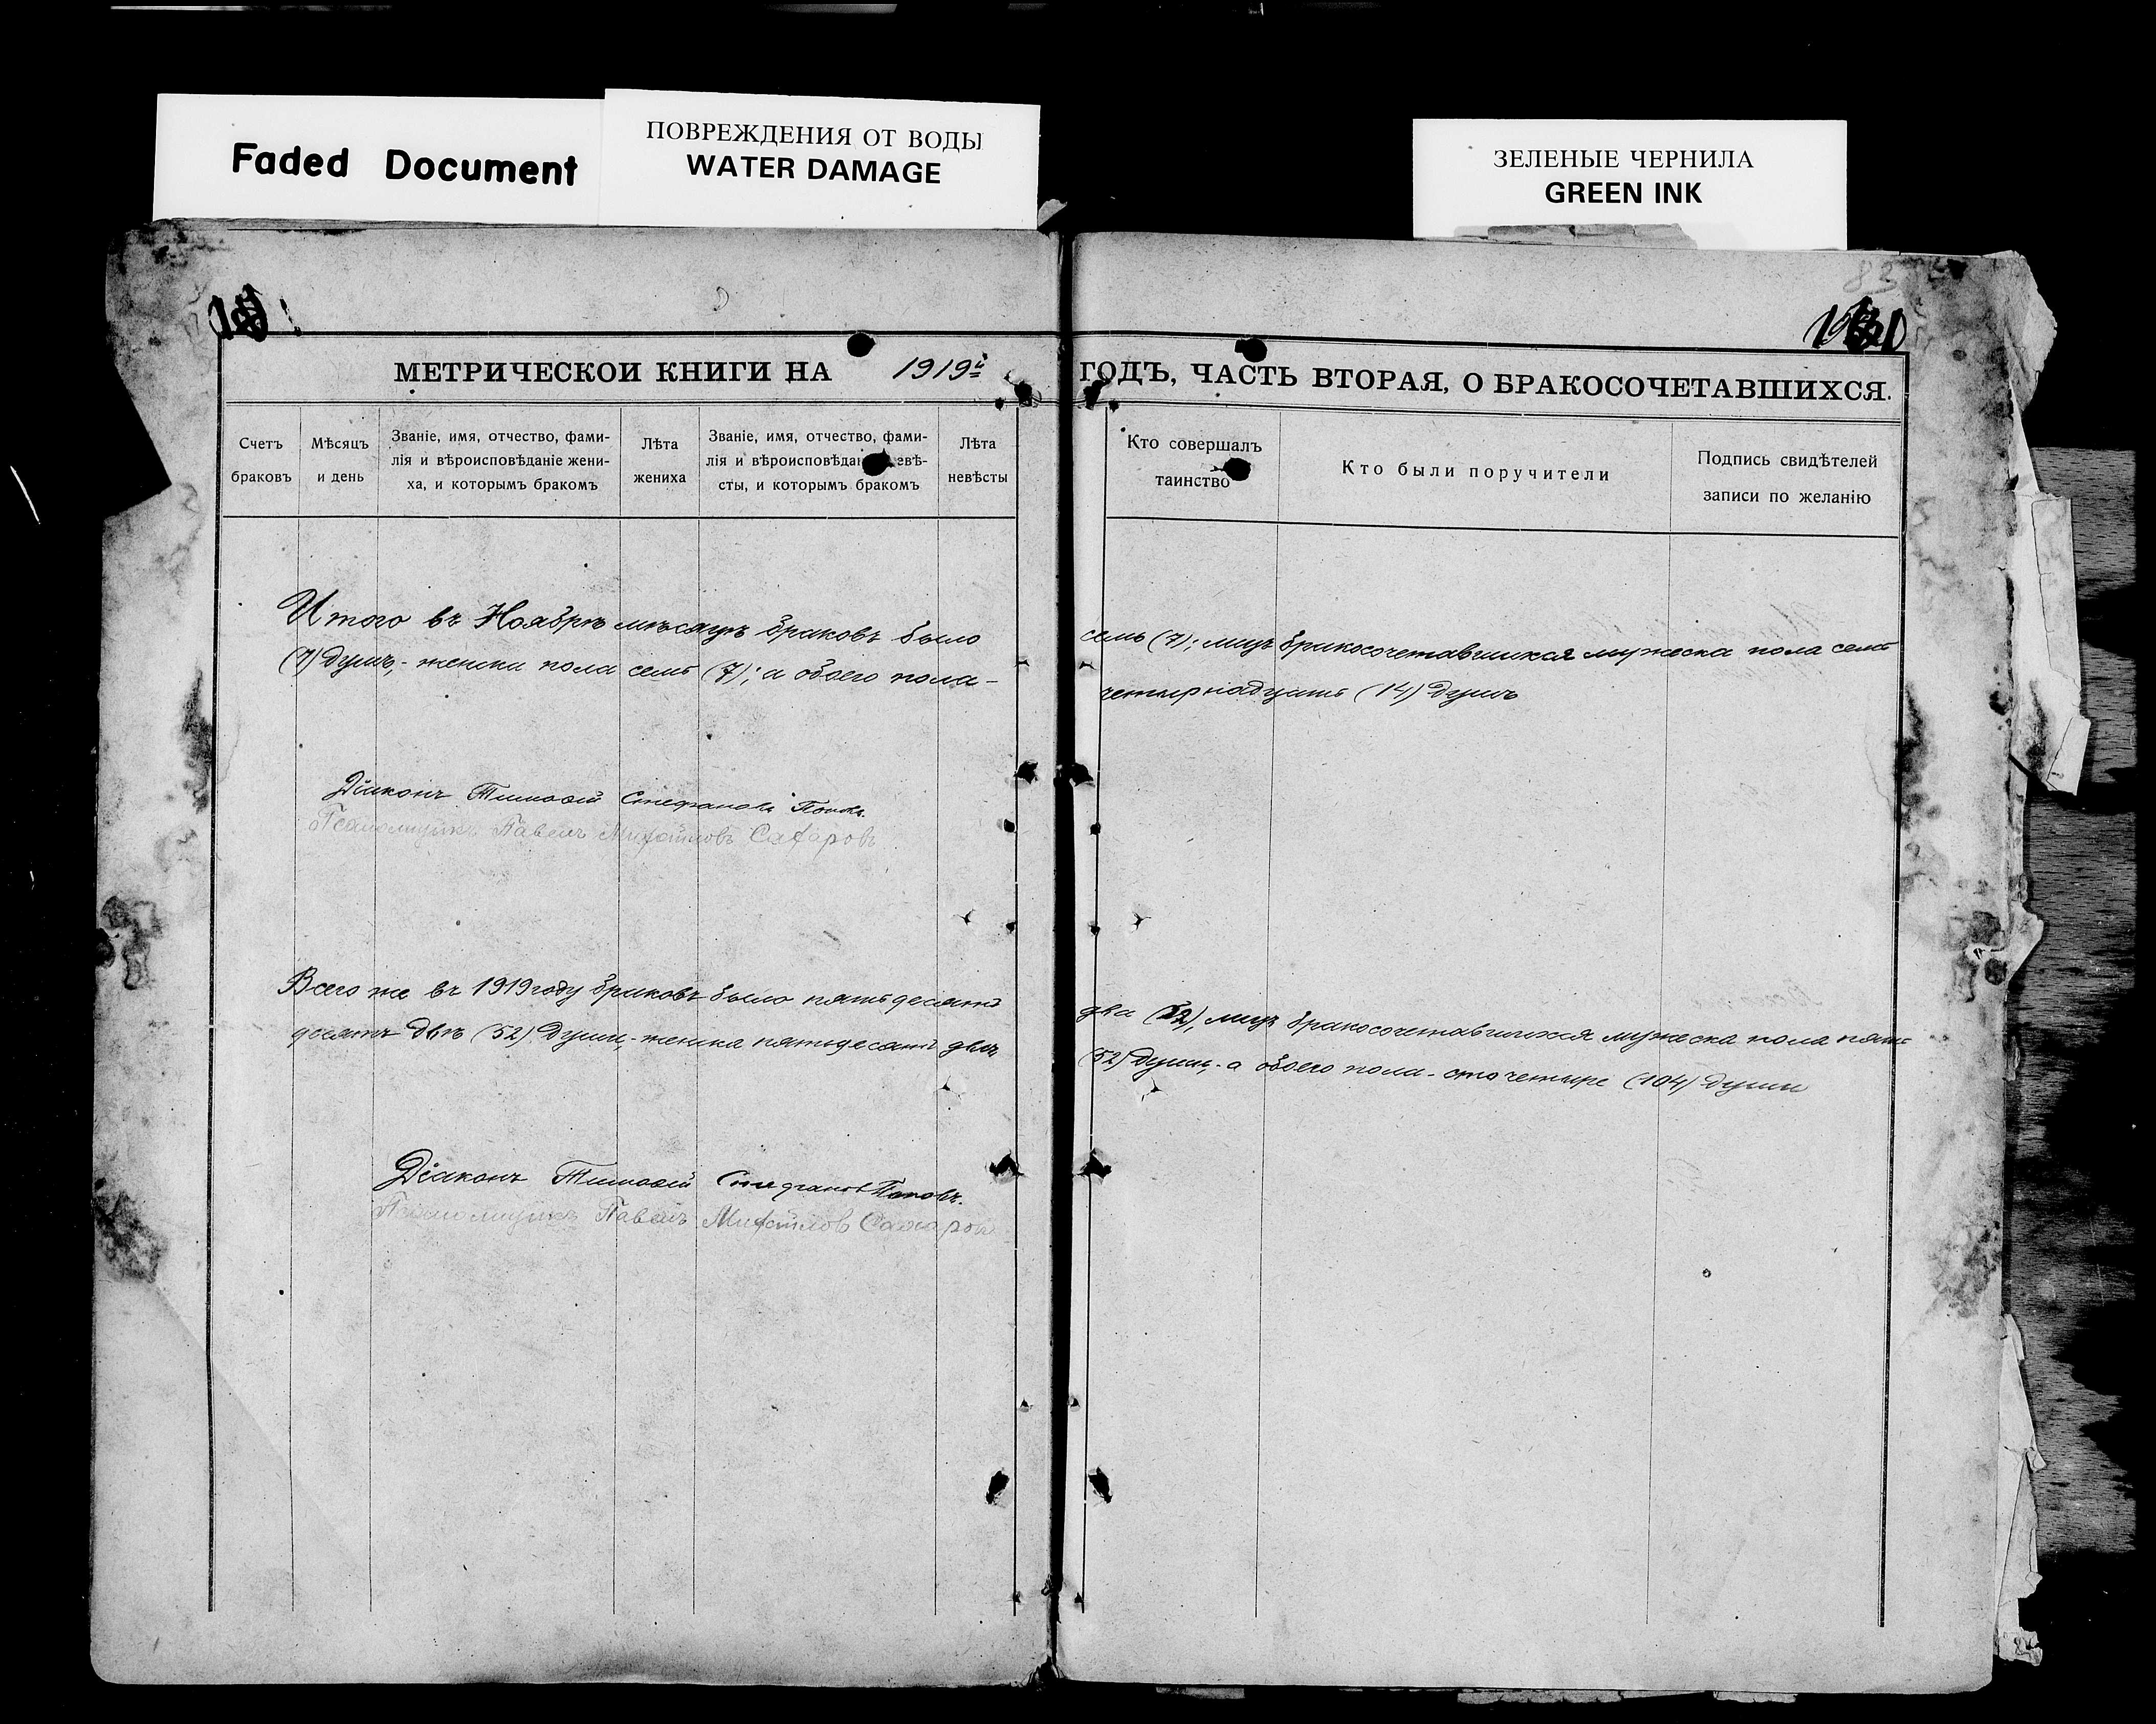 Faded Document
ПОВРЕЖДЕНИЯ ОТ ВОДЫ
WATER DAMAGE
ЗЕЛЕНЫЕ ЧЕРНИЛА
GREEN INK
83
МЕТРИЧЕСКОИ КНИГИ НА 1919й ГОДЪ, ЧАСТЬ ВТОРАЯ, О БРАКОСОЧЕТАВШИХСЯ.
Счетъ
браковъ
Мѣсяцъ
и день
Званіе, имя, отчество, фами-
лія и вѣроисповѣданіе жени-
ха, и которымъ бракомъ
Лѣта
жениха
Званіе, имя, отчество, фами-
лія и вѣроисповѣдан евѣ-
сты, и которымъ бракомъ
Лѣта
невѣсты
Кто совершалъ
таинство
Кто были поручители
Подпись свидѣтелей
записи по желанію
Итого въ Ноябрѣ мѣсяцѣ браковъ было семь (7); лицъ бракосочетавшихся мужеска пола семь
(7) душъ, - женска пола семь (7); а обоего пола - четырнадцать (14) душъ
Діаконъ Тимоѳей Стефановъ Поповъ.
Псаломщикъ Павелъ Михайловъ Сахаровъ
Всего же въ 1919 году браковъ было пятьдесятъ два (52), лицъ бракосочетавшихся мужеска пола пять-
десятъ двѣ (52) души, - женска пятьдесятъ двѣ (52) души, - а обоего пола - сто четыре (104) души
Діаконъ Тимоѳей Стефановъ Поповъ.
Псаломщикъ Павелъ Михайловъ Сахаровъ